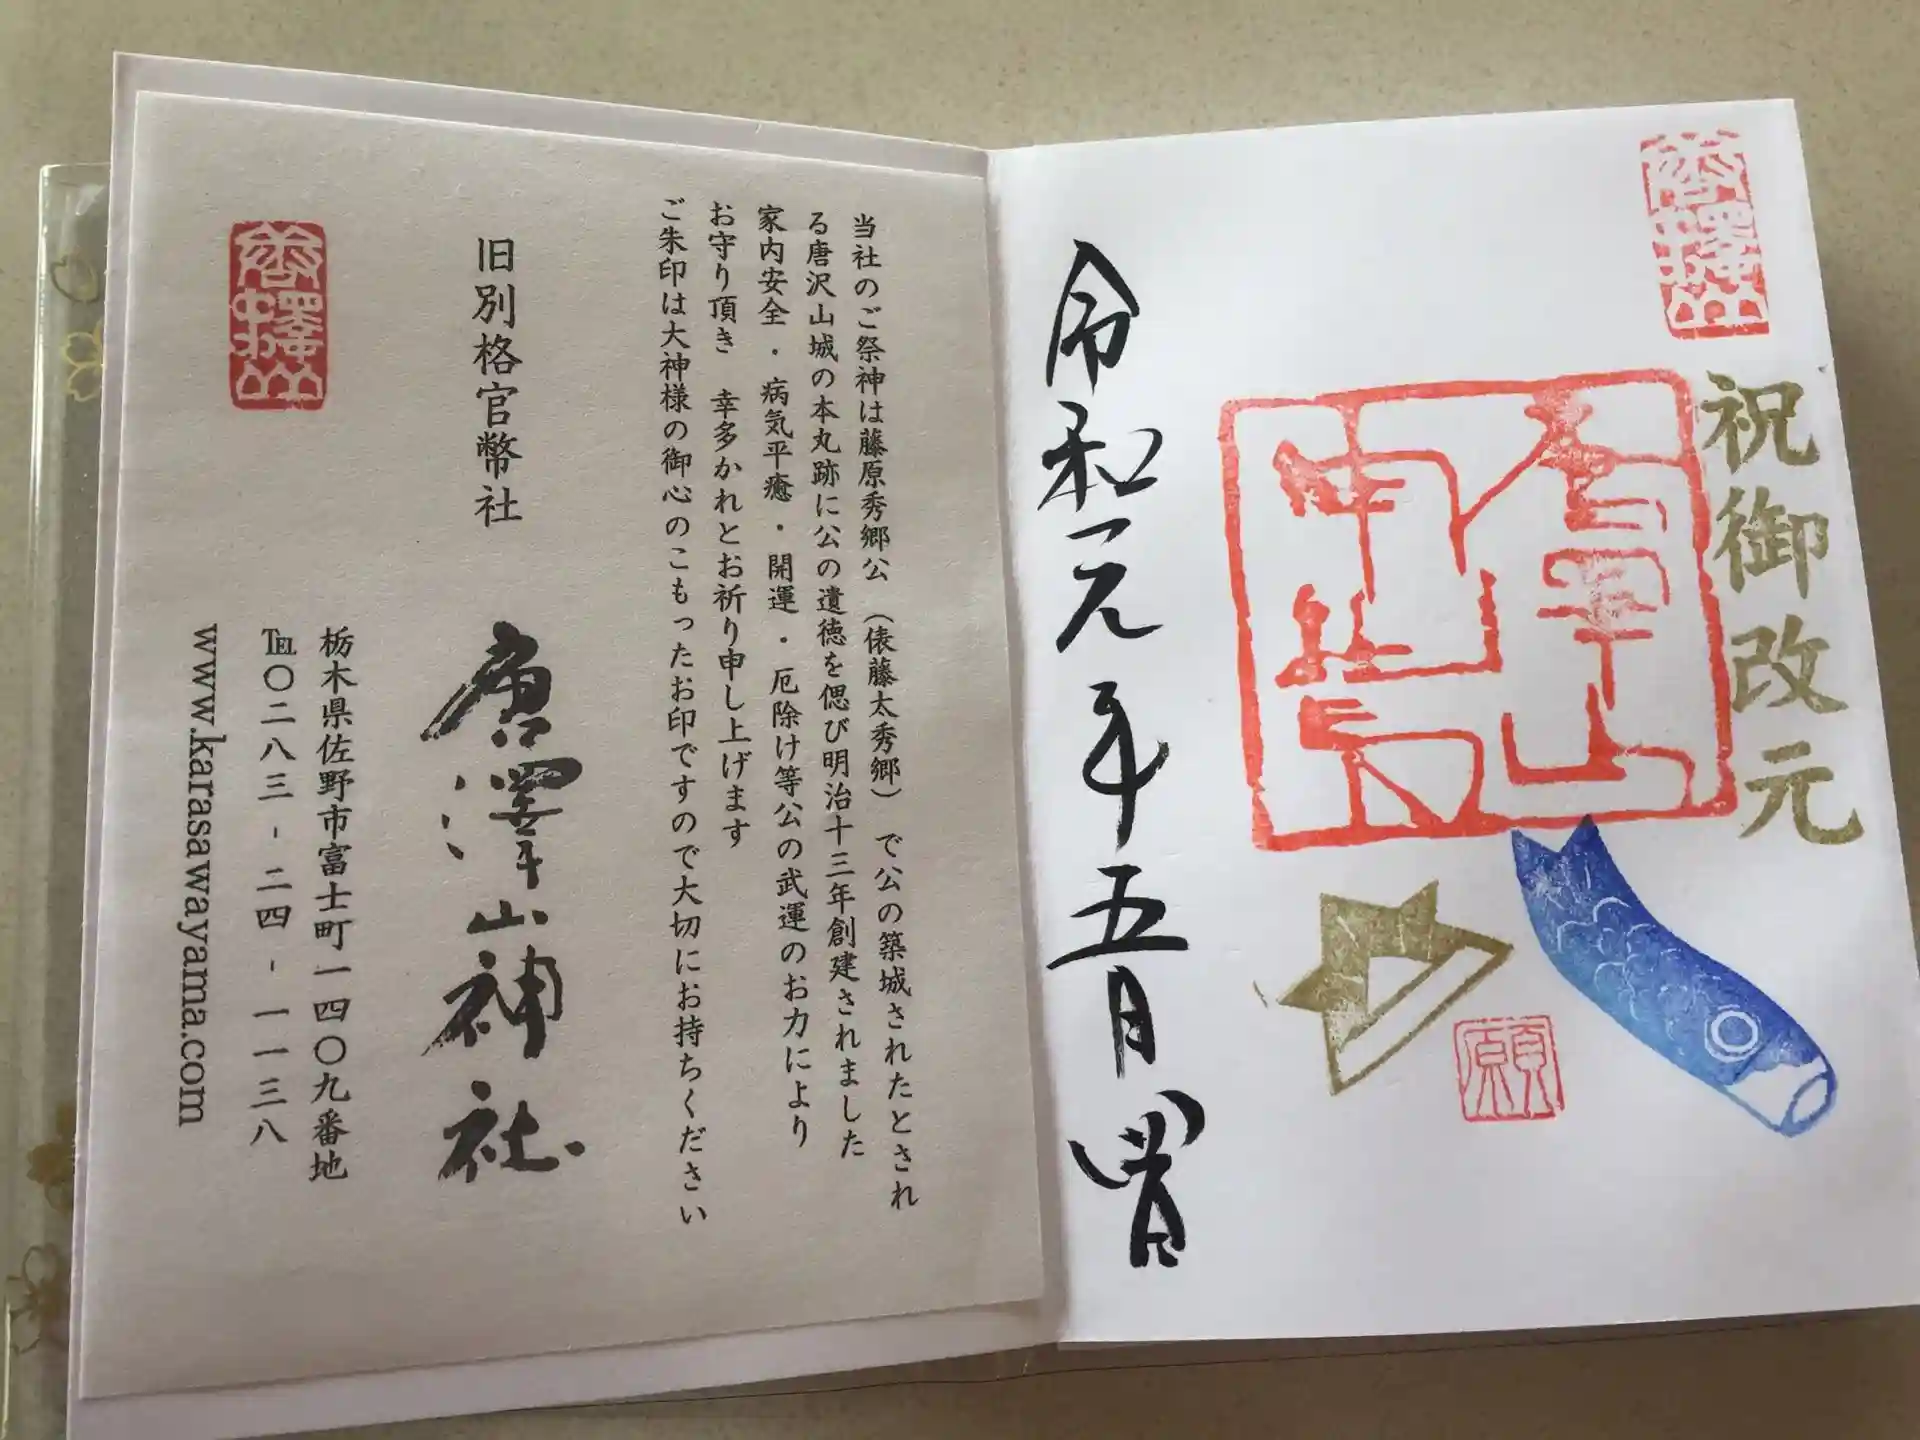 唐澤山
祝御改元
唐澤山神社
願
令和元年五月四日
当社のご祭神は藤原秀郷公（俵藤太秀郷）で公の築城されたとされ
る唐沢山城の本丸跡に公の遺徳を偲び明治十三年創建されました
家内安全・病気平癒・開運・厄除け等公の武運のお力により
お守り頂き　幸多かれとお祈り申し上げます
ご朱印は大神様の御心のこもったお印ですので大切にお持ちください
旧別格官幣社
唐澤山神社
栃木県佐野市富士町一四〇九番地
℡〇二八三-二四-一一三八
www.karasawayama.com
唐澤山